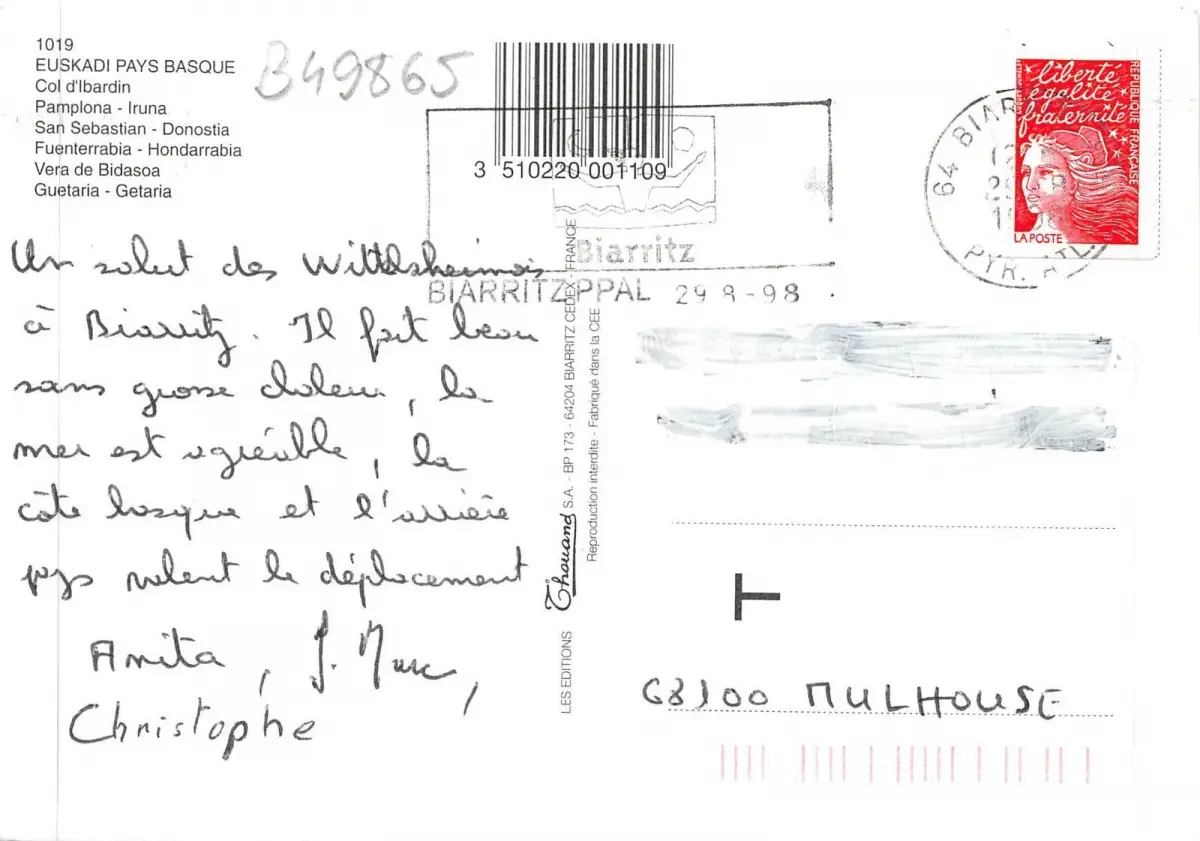 1019
EUSKADI PAYS BASQUE
Col d'Ibardin
Pamplona - Iruna
San Sebastian - Donostia
Fuenterrabia - Hondarrabia
Vera de Bidasoa
Guetaria - Getaria
B49865
3 510220 001109
Biarritz
BIARRITZ PPAL 29 8 - 98
64 BIAR
PYR. ATL
liberté
égalité
fraternité
REPUBLIQUE FRANÇAISE
LA POSTE
Un salut des Wittelsheimois
à Biarritz. Il fait beau
sans grosse chaleur, la
mer est agréable, la
côte basque et l'arrière
pays valent le déplacement
Anita, J. Marc,
Christophe
LES EDITIONS Thouand S.A. - BP 173 - 64204 BIARRITZ CEDEX - FRANCE
Reproduction interdite - Fabriqué dans la CEE
T
68100 MULHOUSE